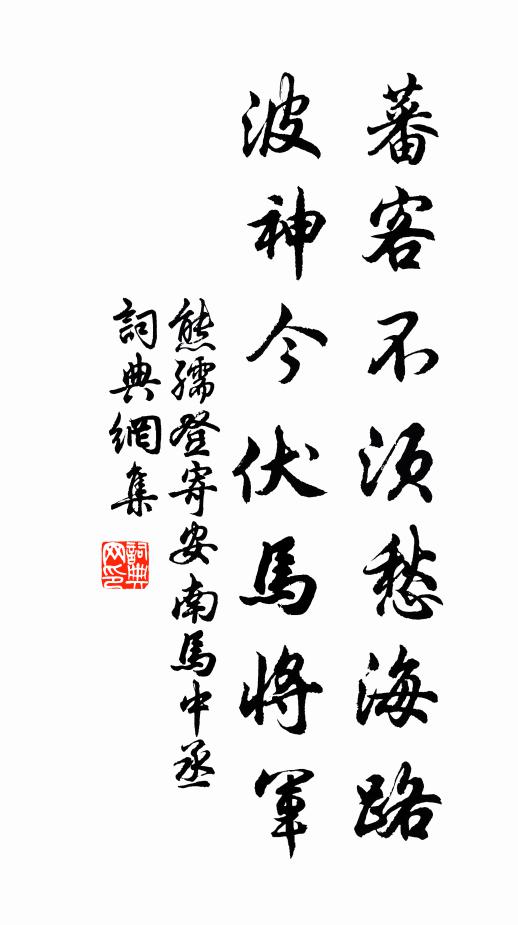 蕃客不須愁海路
波神今伏馬將軍
熊孺登寄安南馬中丞
詞典網集
詞典
网印